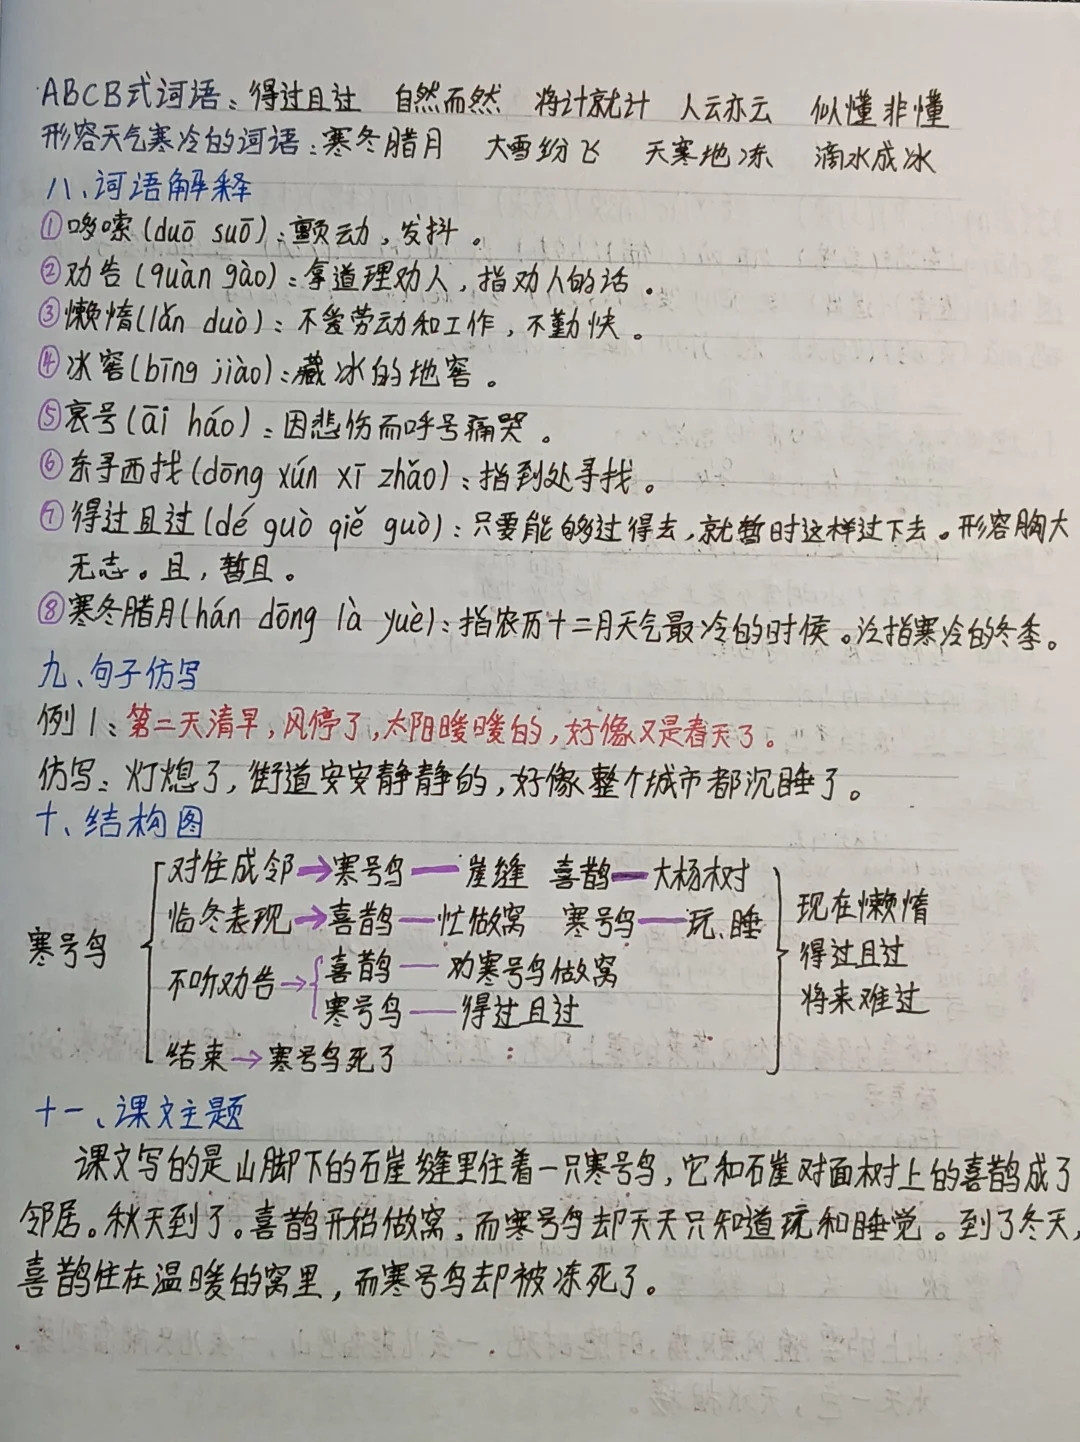 ABCB式词语：得过且过 自然而然 将计就计 人云亦云 似懂非懂
形容天气寒冷的词语：寒冬腊月 大雪纷飞 天寒地冻 滴水成冰
八、词语解释
①哆嗦(duō suō)：颤动，发抖。
②劝告(quàn gào)：拿道理劝人，指劝人的话。
③懒惰(lǎn duò)：不爱劳动和工作，不勤快。
④冰窖(bīng jiào)：藏冰的地窖。
⑤哀号(āi háo)：因悲伤而呼号痛哭。
⑥东寻西找(dōng xún xī zhǎo)：指到处寻找。
⑦得过且过(dé guò qiě guò)：只要能够过得去，就暂时这样过下去。形容胸大
无志。且，暂且。
⑧寒冬腊月(hán dōng là yuè)：指农历十二月天气最冷的时候。泛指寒冷的冬季。
九、句子仿写
例1：第二天清早，风停了，太阳暖暖的，好像又是春天了。
仿写：灯熄了，街道安安静静的，好像整个城市都沉睡了。
十、结构图
对住成邻→寒号鸟—崖缝 喜鹊—大杨树
临冬表现→喜鹊—忙做窝 寒号鸟—玩、睡
寒号鸟
不听劝告→喜鹊—劝寒号鸟做窝
寒号鸟—得过且过
结束→寒号鸟死了
现在懒惰
得过且过
将来难过
十一、课文主题
课文写的是山脚下的石崖缝里住着一只寒号鸟，它和石崖对面树上的喜鹊成了
邻居。秋天到了。喜鹊开始做窝；而寒号鸟却天天只知道玩和睡觉。到了冬天，
喜鹊住在温暖的窝里，而寒号鸟却被冻死了。